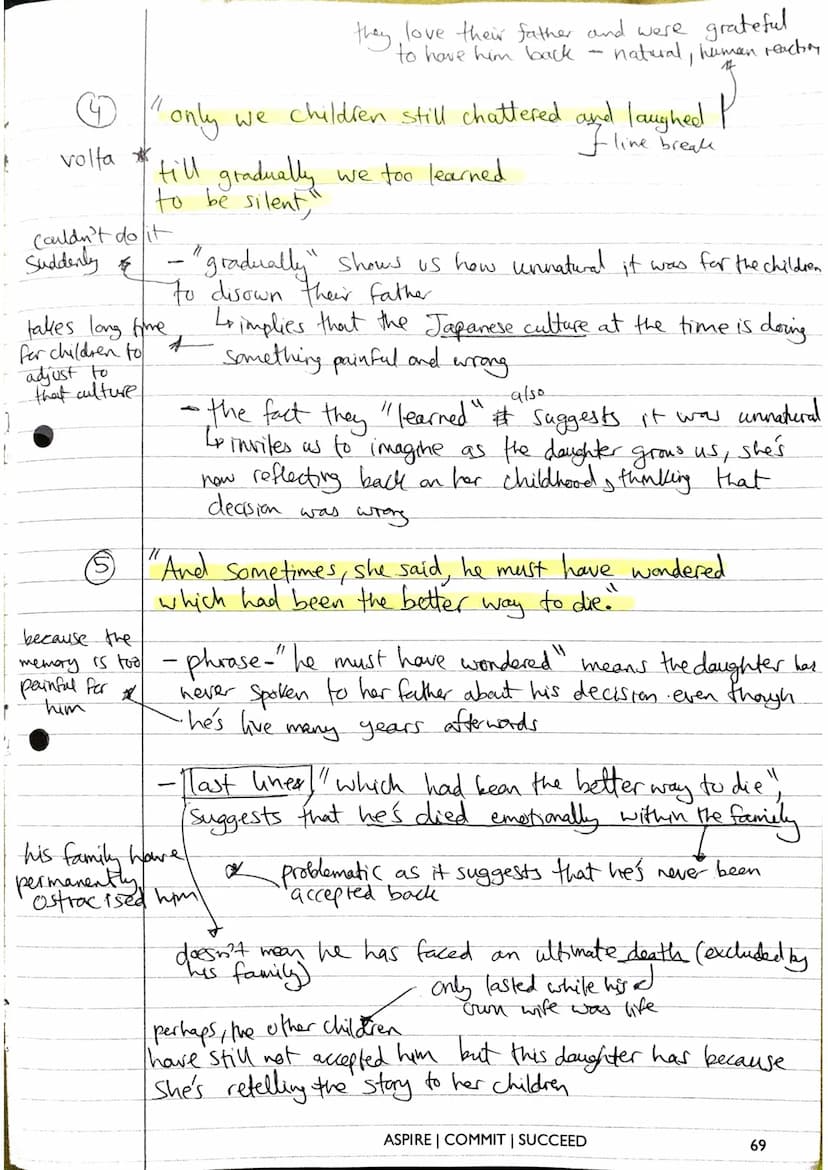 they love their father and were grateful
to have him back - natural, human reaction
④ "only we children still chattered and laughed
} line break
volta *
till gradually we too learned
to be silent,"
couldn't do it
suddenly
- "gradually" shows us how unnatural it was for the children
to disown their father
↳ implies that the Japanese culture at the time is doing
something painful and wrong
takes long time
for children to
adjust to
that culture
- the fact they "learned" also suggests it was unnatural
↳ invites us to imagine as the daughter grows us, she's
now reflecting back on her childhood & thinking that
decision was wrong
⑤ "And sometimes, she said, he must have wondered
which had been the better way to die."
because the
memory is too
painful for
him
- phrase - "he must have wondered" means the daughter has
never spoken to her father about his decision even though
he's live many years afterwords
- last lines "which had bean the better way to die",
suggests that he's died emotionally within the family
his family have
permanently
ostracised him
problematic as it suggests that he's never been
accepted back
doesn't mean he has faced an ultimate death (excluded by
his family)
only lasted while his
own wife was life
perhaps, the other children
have still not accepted him but this daughter has because
she's retelling the story to her children
ASPIRE | COMMIT | SUCCEED
69